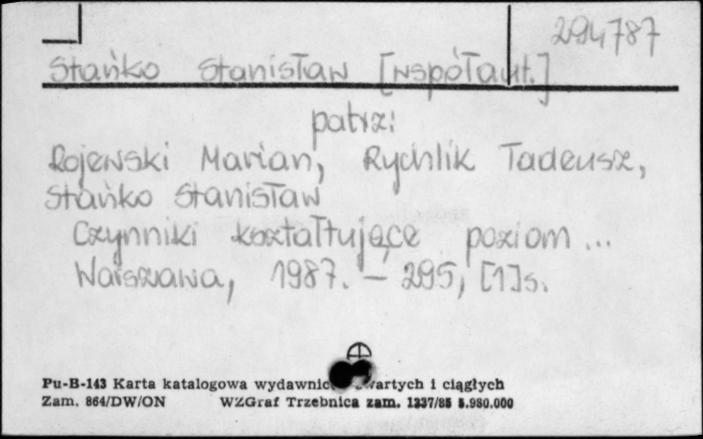 294787
Stańko Stanisław [współaut.]
patrz:
Rojewski Marian, Rychlik Tadeusz,
Stańko Stanisław
Czynniki kształtujące poziom...
Warszawa, 1987. - 295, [1]s.
Pu-B-143 Karta katalogowa i ciągłych
Zam. 864/DW/ON WZGraf Trzebnica zam. 1337/85 5.980.000